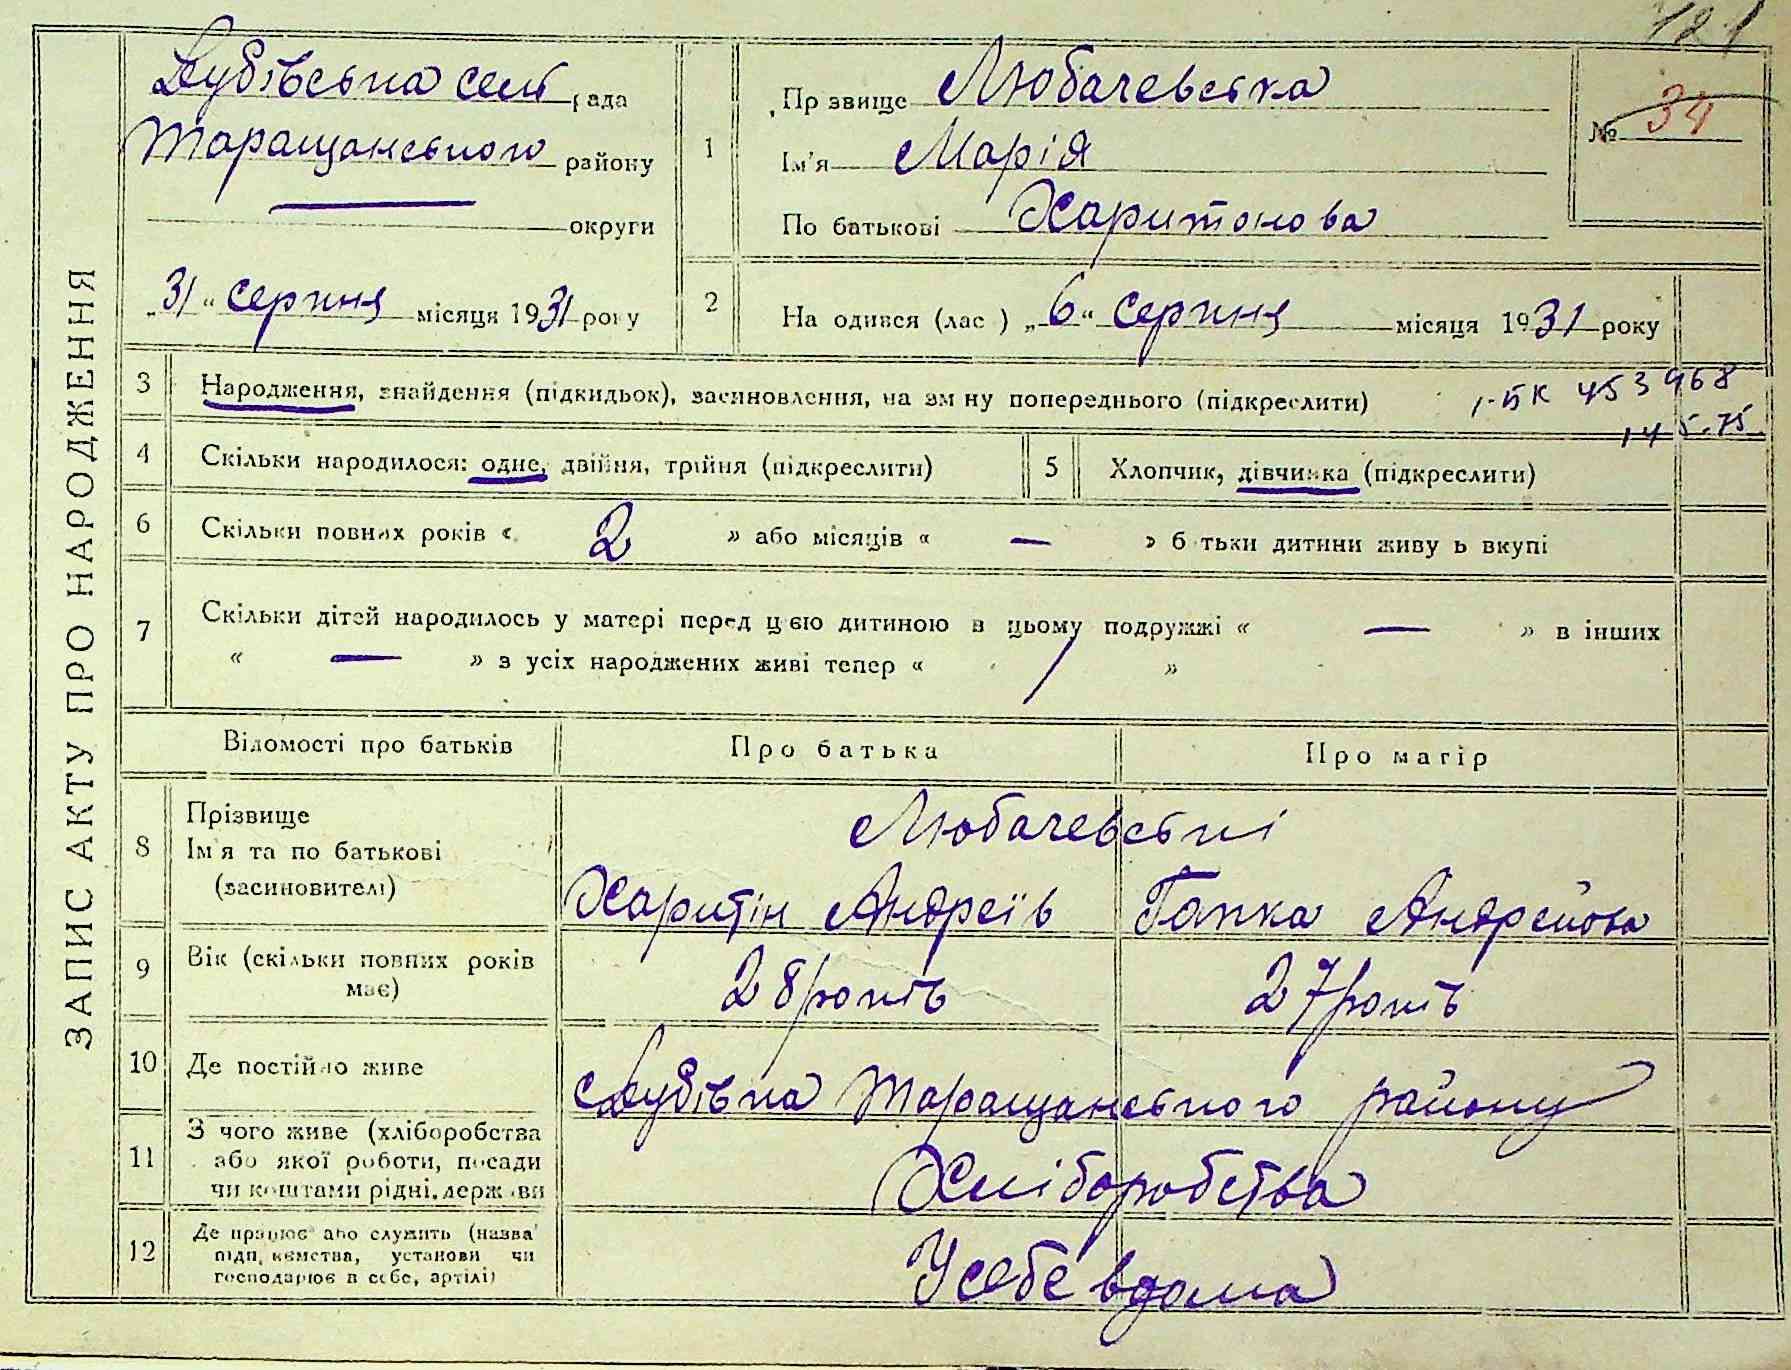 121
ЗАПИС АКТУ ПРО НАРОДЖЕННЯ
Лубівська сель рада
Таращанського району
округи
„31“ серпня місяця 1931 року
1
Прізвище Любачевська
Ім'я Марія
По батькові Харитонова
№ 34
2
Народився (лася) „6“ серпня місяця 1931 року
3
Народження, знайдення (підкидьок), засиновлення, на зміну попереднього (підкреслити)
1-БК 453968
14 5-75
4
Скільки народилося: одне, двійня, трійня (підкреслити)
5
Хлопчик, дівчинка (підкреслити)
6
Скільки повних років « 2 » або місяців « — » батьки дитини живуть вкупі
7
Скільки дітей народилось у матері перед цією дитиною в цьому подружжі « — » в інших
« — » з усіх народжених живі тепер « / »
Відомості про батьків
Про батька
Про матір
8
Прізвище
Ім'я та по батькові
(засиновителі)
Любачевські
Харитін Андреїв
Гапка Андрейова
9
Вік (скільки повних років
має)
28 років
27 років
10
Де постійно живе
с Лубівка Таращанського району
11
З чого живе (хліборобства
або якої роботи, посади
чи коштами рідні, держави
Хліборобства
12
Де працює або служить (назва
підприємства, установи чи
господарює в себе, артілі)
У себе вдома